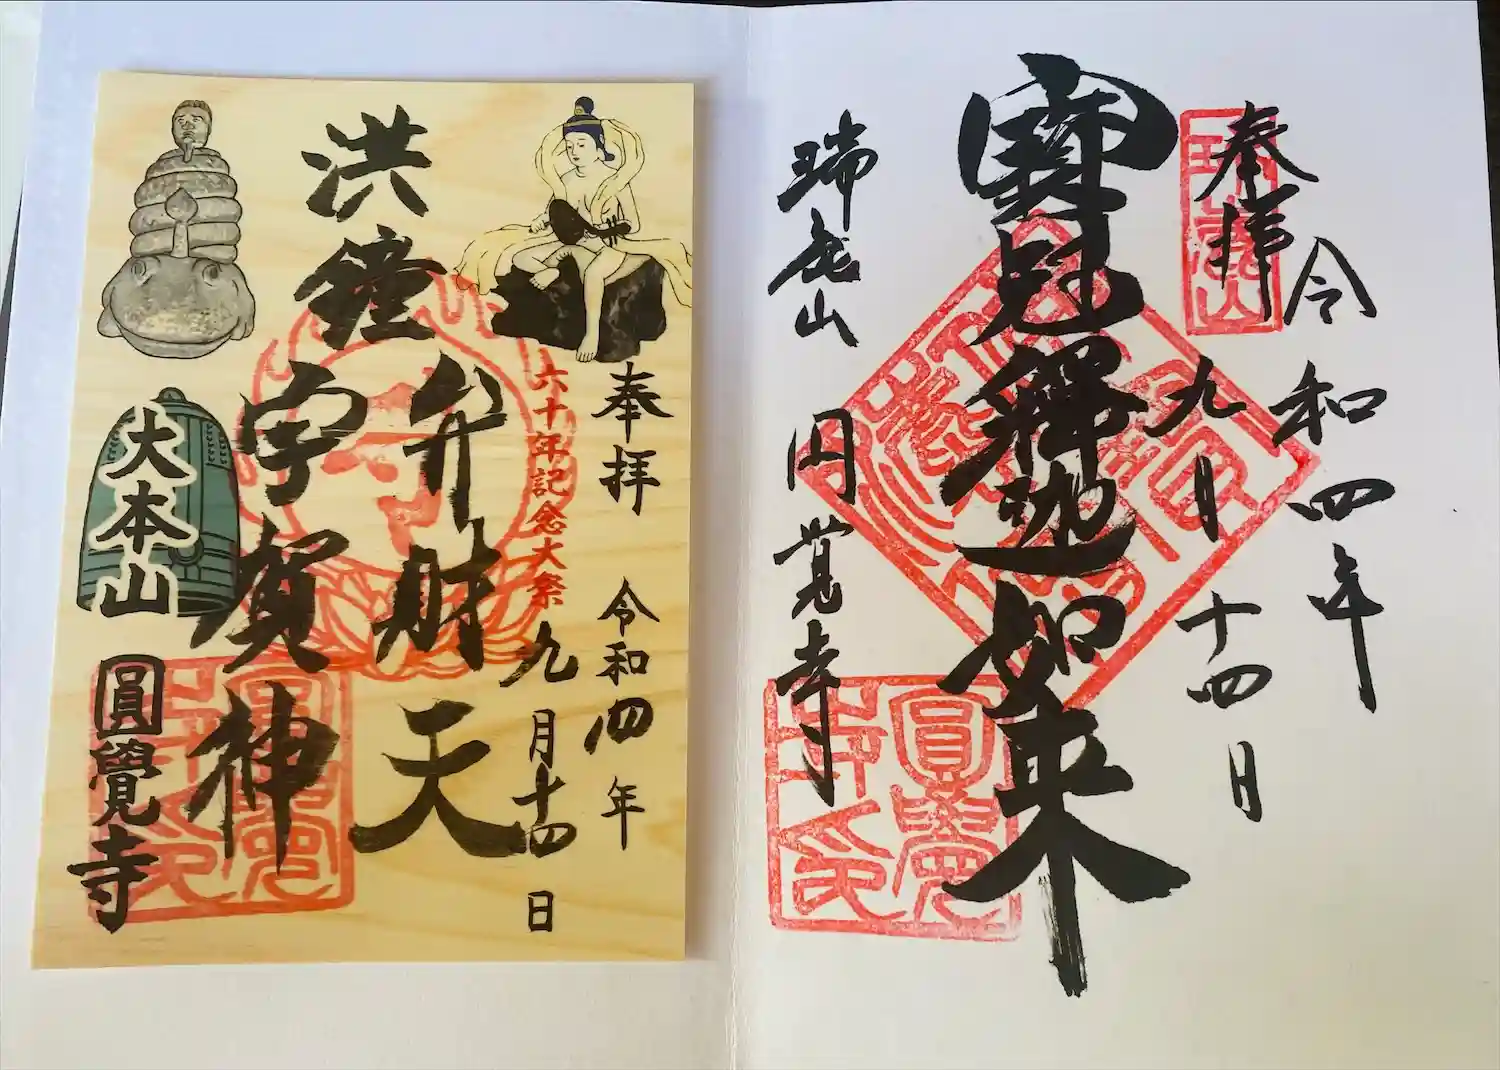 奉拝
令和四年
九月十四日
寶冠釋迦如来
瑞鹿山
円覚寺
瑞鹿山
圓覺寺印
奉拝
令和四年
九月十四日
六十年記念大祭
洪鐘
弁財天
宇賀神
大本山
圓覺寺
圓覺寺印